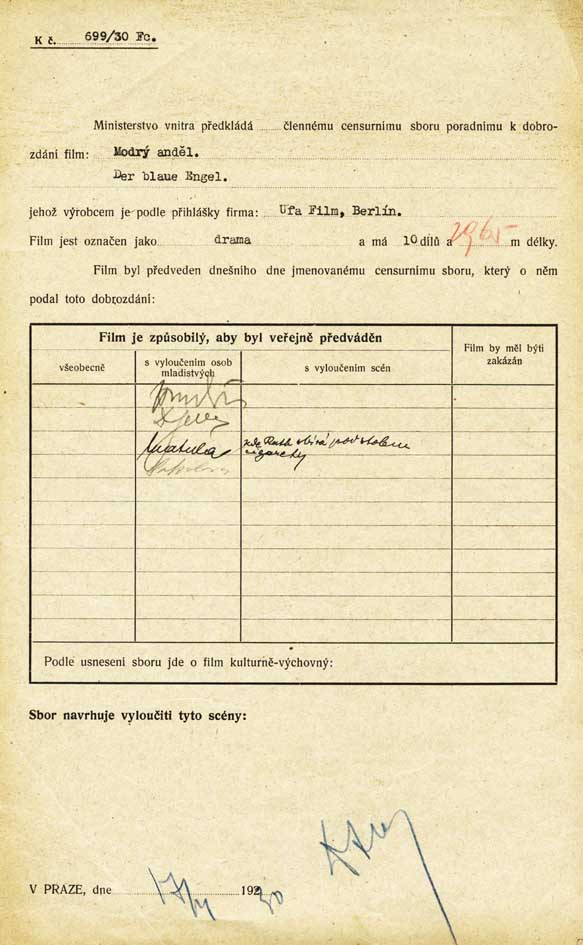 K č. 699/30 Fc.
Ministerstvo vnitra předkládá člennému censurnimu sboru poradnimu k dobro-
zdáni film: Modrý anděl.
Der blaue Engel.
jehož výrobcem je podle přihlášky firma: Ufa Film, Berlín.
Film jest označen jako drama a má 10 dílů a 2965 m délky.
Film byl předveden dnešního dne jmenovanému censurnimu sboru, který o něm
podal toto dobrozdání:
Film je způsobilý, aby byl veřejně předváděn
Film by měl býti
zakázán
všeobecně
s vyloučením osob
mladistvých
s vyloučením scén
Matula
kde Rath sbírá pod stolem
cigarety
Podle usneseni sboru jde o film kulturně-výchovný:
Sbor navrhuje vyloučiti tyto scény:
V PRAZE, dne 17/ 1930